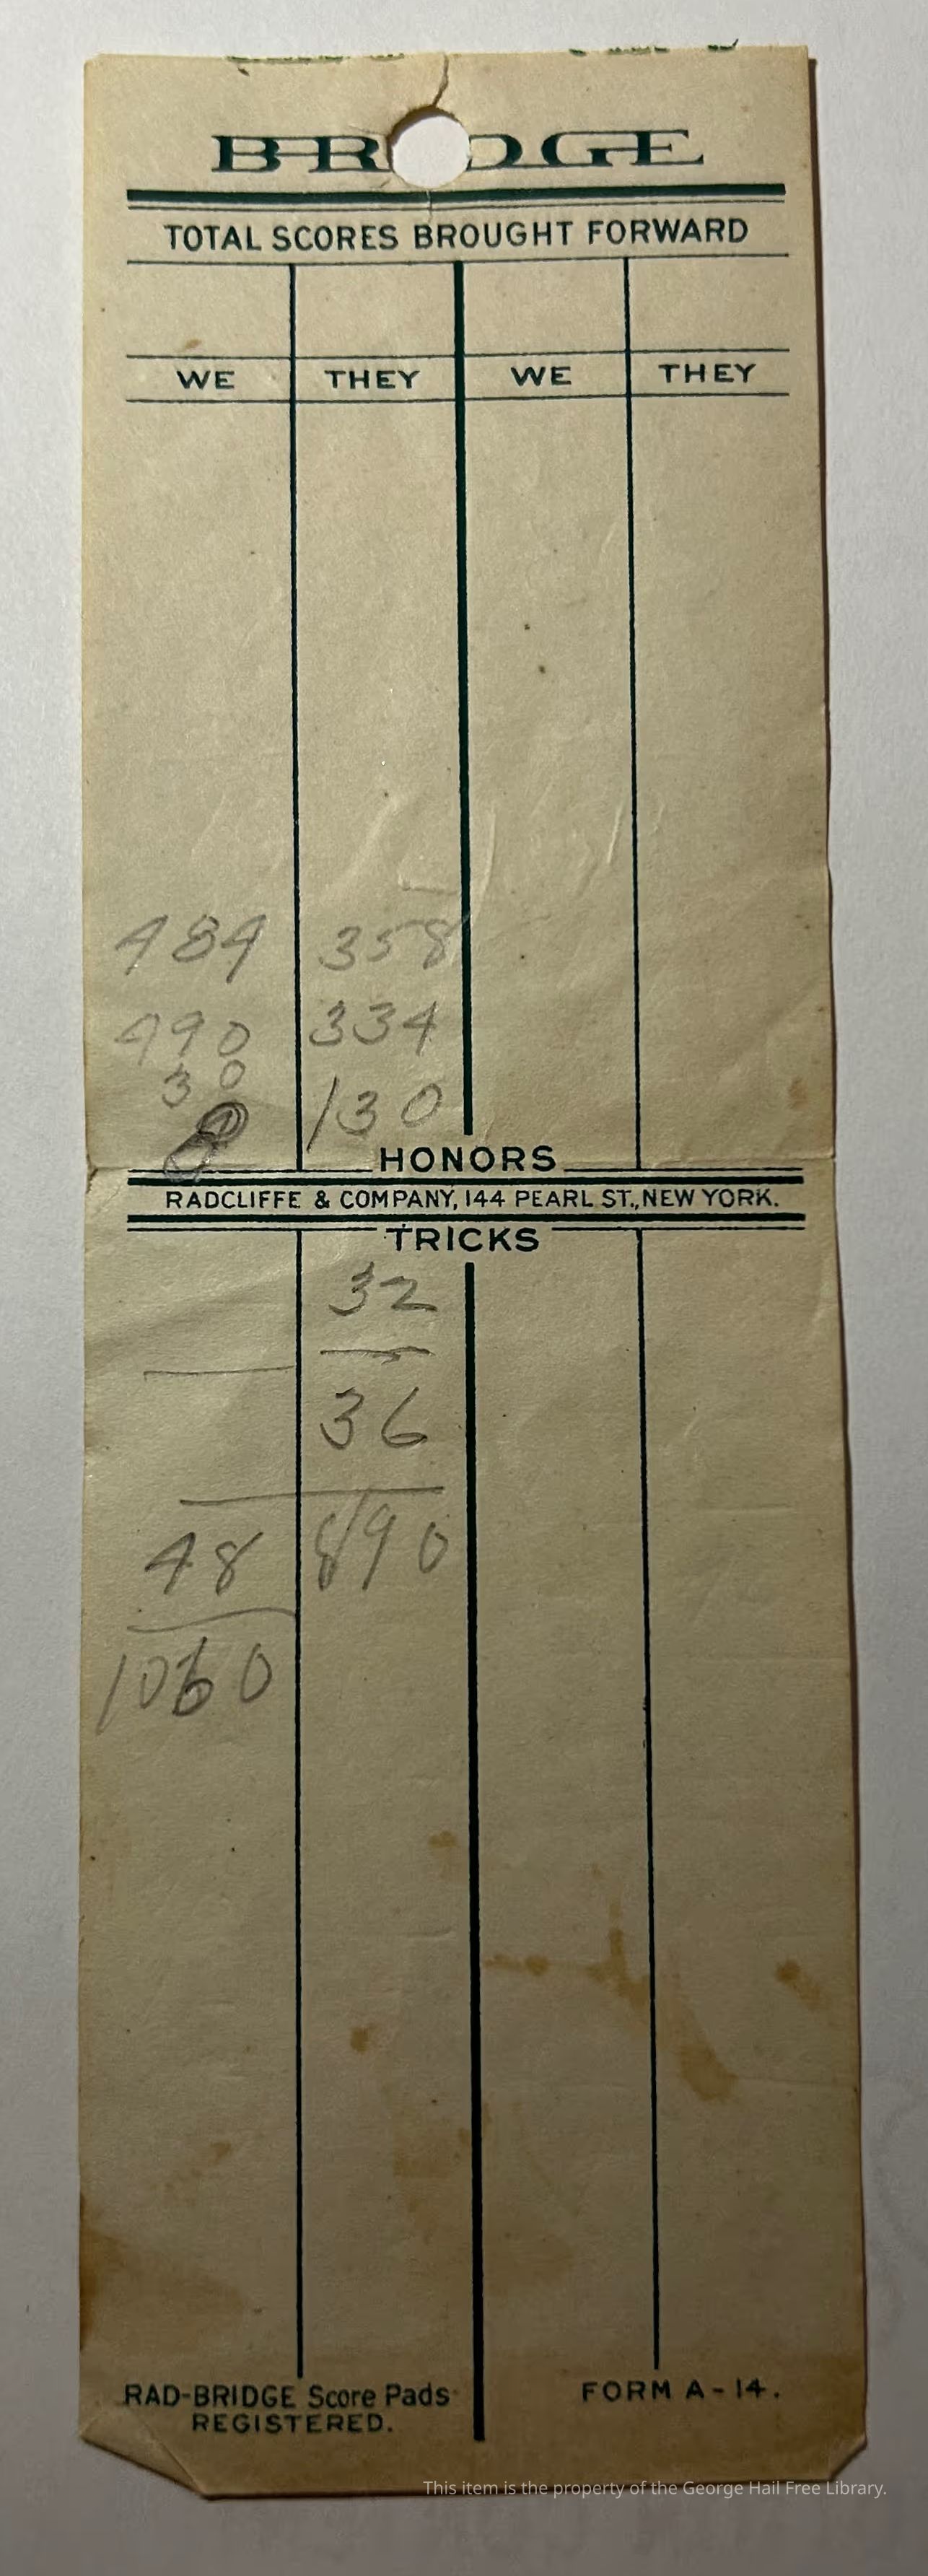 BRIDGE
TOTAL SCORES BROUGHT FORWARD
WE THEY WE THEY
484 358
490 334
30
8 130
HONORS
RADCLIFFE & COMPANY, 144 PEARL ST., NEW YORK.
TRICKS
32
36
48 890
1060
RAD-BRIDGE Score Pads FORM A-14.
REGISTERED.
This item is the property of the George Hail Free Library.